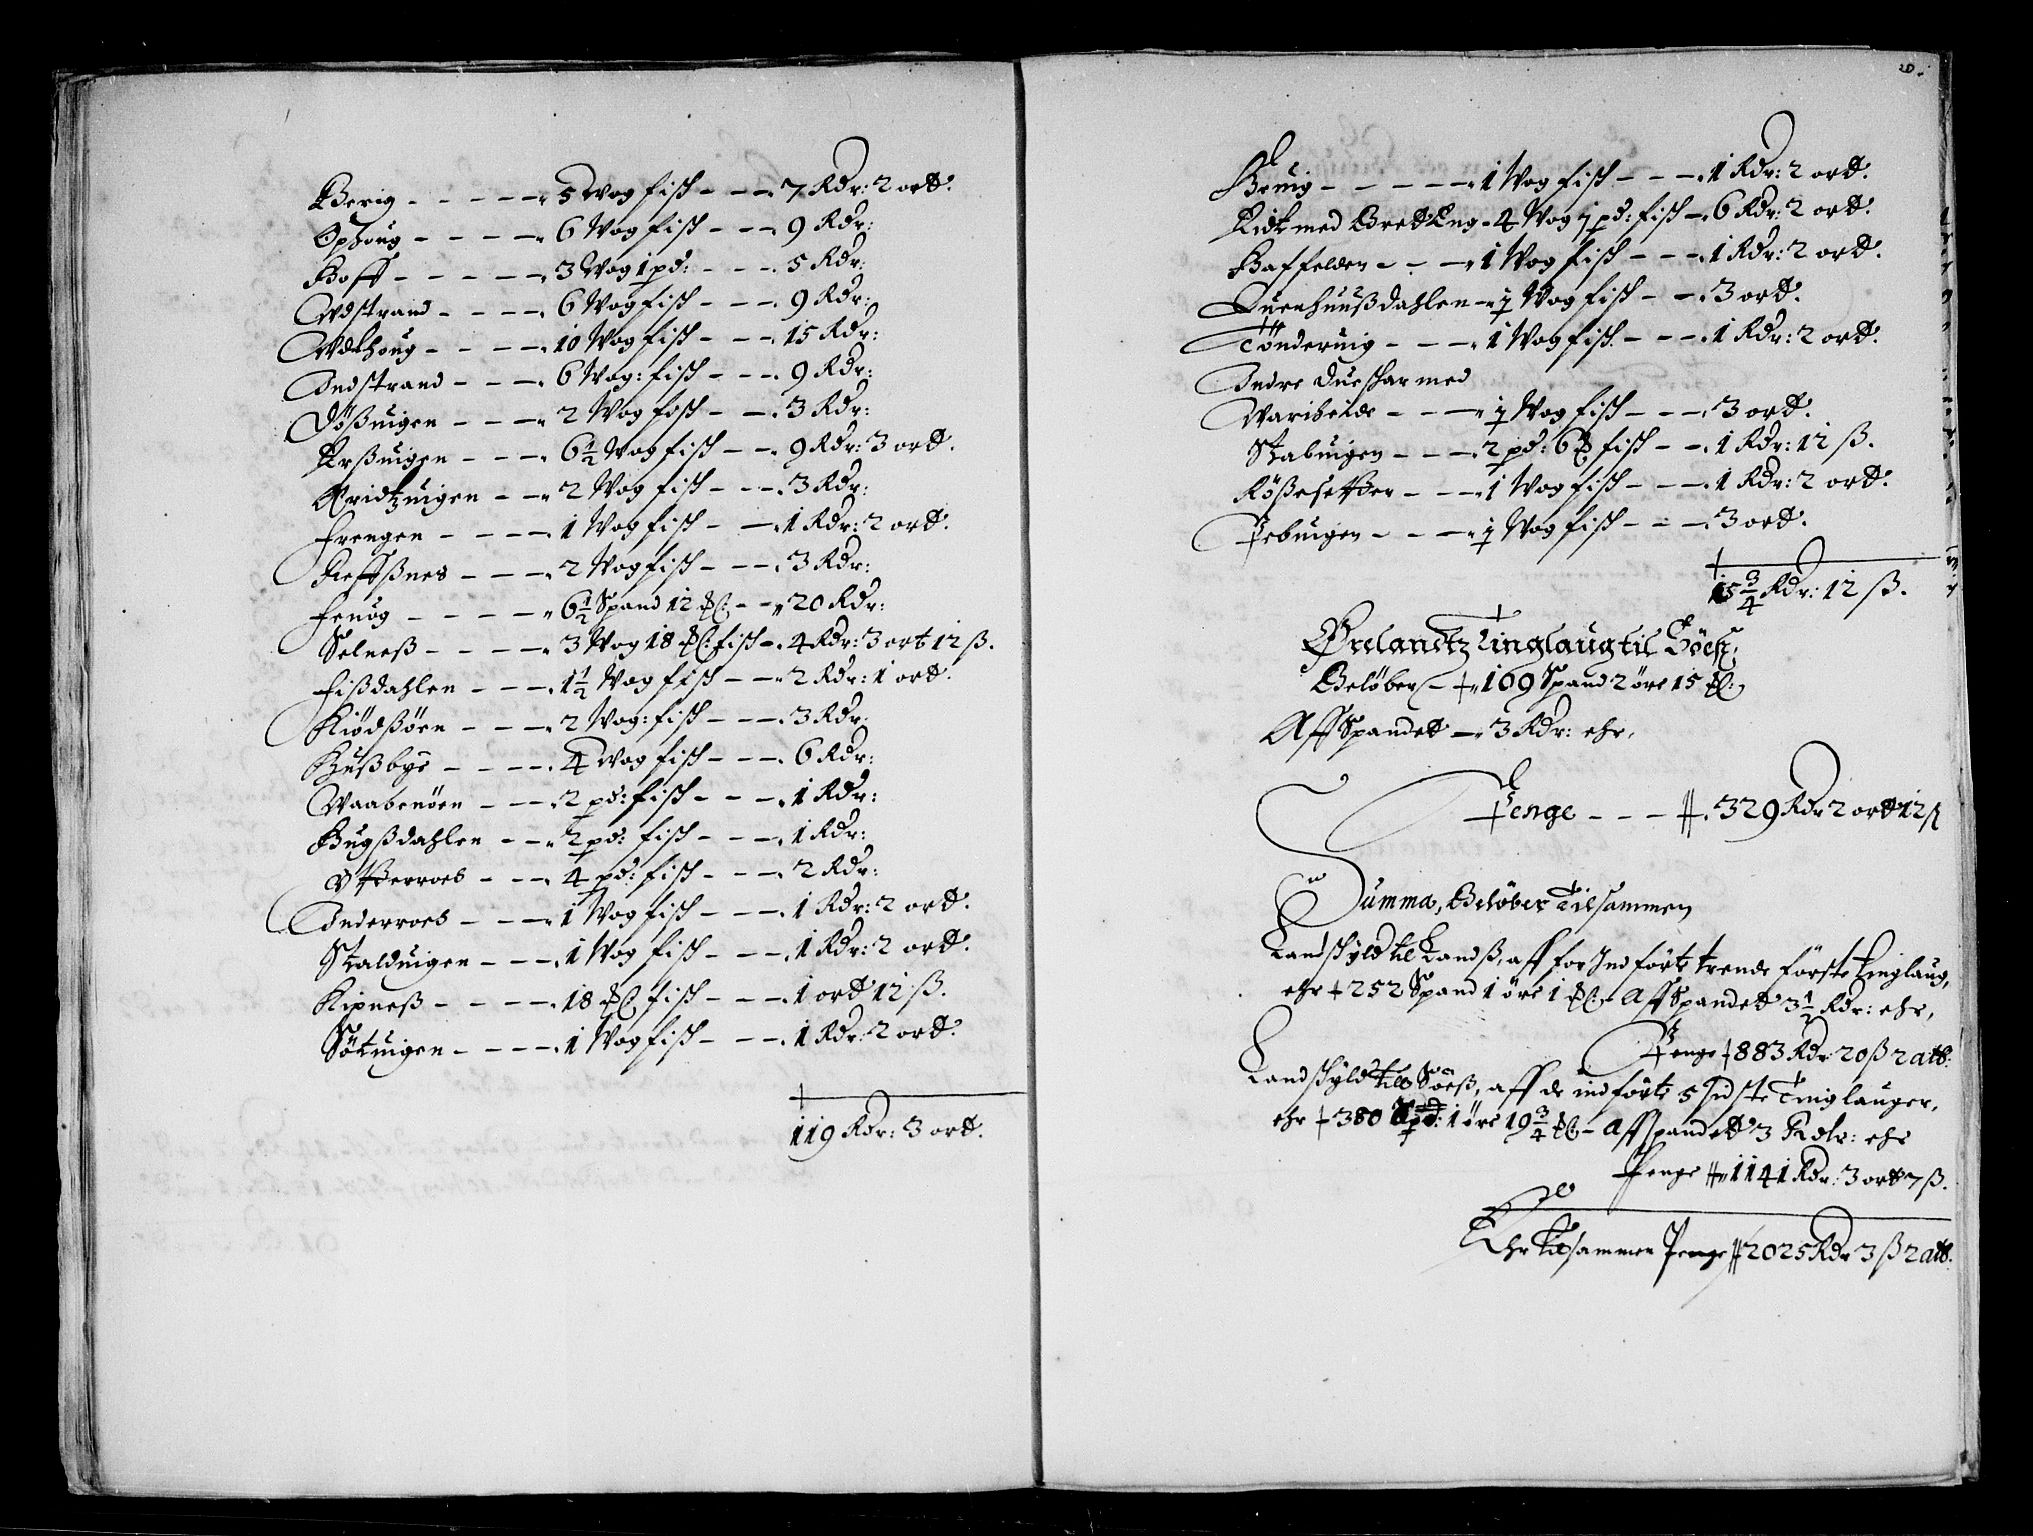 Berig - - - - - 5 Wog fisk - - - 7 Rdr: 2 ort.
Ophoug - - - - 6 Wog fisk - - - 9 Rdr:
Hoff - - - - - 3 Wog 1 pd: - - - 5 Rdr:
Wdstrand - - - - 6 Wog fisk - - - 9 Rdr:
Wdthoug - - - - 10 Wog fisk - - - 15 Rdr:
Indstrand - - - - 6 Wog: fisk - - - 9 Rdr:
Døßuigen - - - 2 Wog fisk - - - 3 Rdr:
Arßuigen - - - 6½ Wog fisk - - 9 Rdr: 3 ort.
Kridtzuigen - - - 2 Wog fisk - - - 3 Rdr:
Frengen - - - - 1 Wog fisk - - - 1 Rdr: 2 ort.
Reffßnes - - - - 2 Wog fisk - - - 3 Rdr:
Fenøg - - - - - 6½ Spand 12 ℔: - - 20 Rdr:
Selneß - - - - - 3 Wog 18 ℔: fisk - 4 Rdr: 3 ort 12 ß.
Fißdahlen - - - 1½ Wog fisk - - - 2 Rdr: 1 ort.
Kiødßøen - - - - 2 Wog: fisk - - - 3 Rdr:
Hußbye - - - - 4 Wog fisk - - - 6 Rdr:
Waabenøen - - - 2 pd: fisk - - - 1 Rdr:
Bugßdahlen - - - 2 pd: fisk - - - 1 Rdr:
Ytterroes - - - 4 pd: fisk - - - 2 Rdr:
Inderroes - - - - 1 Wog fisk - - - 1 Rdr: 2 ort.
Stalduigen - - - 1 Wog fisk - - - 1 Rdr: 2 ort.
Kipneß - - - - - 18 ℔ fisk - - - 1 ort 12 ß.
Søtuigen - - - - 1 Wog fisk - - - 1 Rdr: 2 ort.
119 Rdr: 3 ort.
Bruig - - - - - 1 Wog fisk - - - 1 Rdr: 2 ort.
med Bret Eng - 4 Wog 1 pd: fisk - 6 Rdr: 2 ort.
Haffelden - - - 1 Wog fisk - - - 1 Rdr: 2 ort.
Duenhuußdahlen - ½ Wog fisk - - 3 ort.
Tønderuig - - - 1 Wog fisk - - - 1 Rdr: 2 ort.
Indre Dueskar med
Waribeide - - - ½ Wog fisk - - - 3 ort.
Stabuigen - - - 2 pd: 6 ℔ fisk - - 1 Rdr: 12 ß.
Røßesetter - - - 1 Wog fisk - - - 1 Rdr: 2 ort.
Tebuigen - - - ½ Wog fisk - - - 3 ort.
15¾ Rdr: 12 ß.
Ørelandtz Tinglaug til
Beløber - 109 Spand 2 øre 15 ℔:
Aff Spandet - 3 Rdr: ehr,
Penge - - - 329 Rdr 2 ort 12 ß
Summa, Beløber Tilsammen
Landskyld til Landß, aff for Indførte trende første tinglaug,
ehr 252 Spand 1 øre 1 ℔ - Aff Spandet 3½ Rdr: ehr,
Penge 883 Rdr 20 ß 2 alb:
Landskyld till Søeß, aff de indførte 5 sidste Tinglauger,
ehr 380 1 øre 19¾ ℔ - Aff spandet 3 Rdlr: ehr
Penge 1141 Rdr: 3 ort 7 ß.
Ehr Tilsammen Penge 2025 Rdr 3 ß 2 alb.